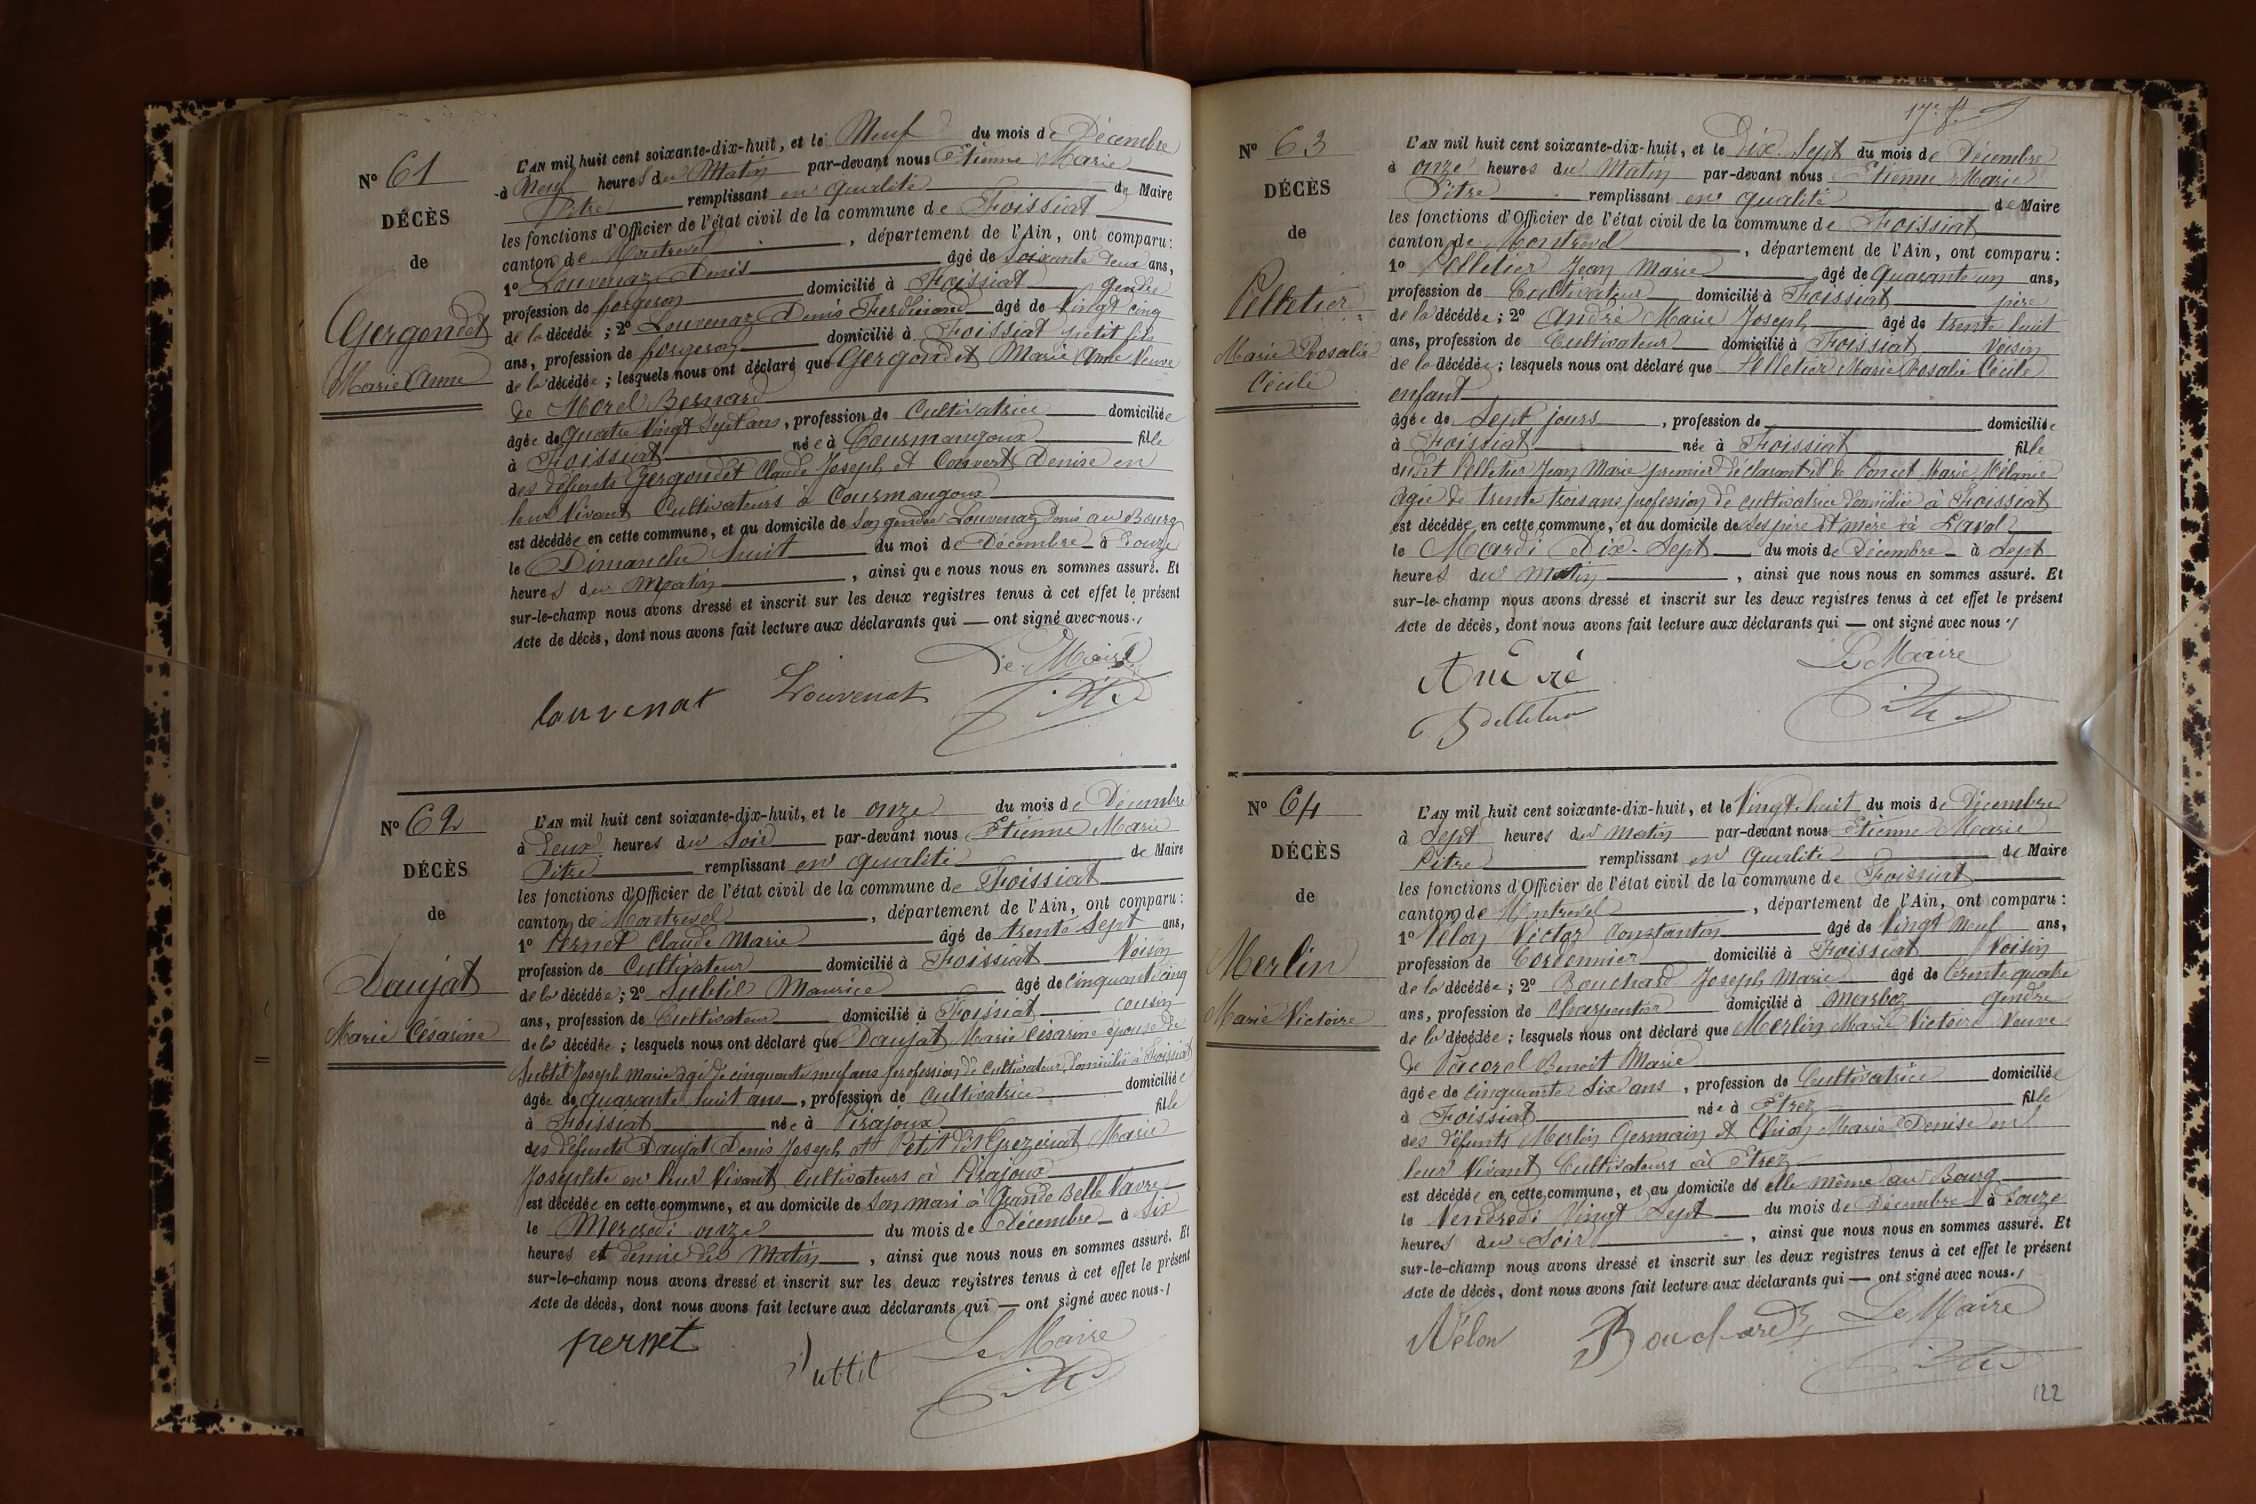 Nº 61
DÉCÈS
de
Gergondet
Marie Anne
L'AN mil huit cent soixante-dix-huit, et le Neuf du mois de Décembre
à Neuf heures du Matin par-devant nous Etienne Marie
Pitre remplissant en qualité de Maire
les fonctions d'Officier de l'état civil de la commune de Foissiat
canton de Montrevel, département de l'Ain, ont comparu:
1º Louvenaz Denis âgé de soixante deux ans,
profession de forgeron domicilié à Foissiat gendre
de la décédée; 2º Louvenaz Denis Ferdinand âgé de Vingt cinq
ans, profession de forgeron domicilié à Foissiat petit fils
de la décédée; lesquels nous ont déclaré que Gergondet Marie Anne Veuve
de Morel Bernard
âgée de Quatre Vingt Sept ans, profession de Cultivatrice domiciliée
à Foissiat née à Courmangoux fille
des défunts Gergondet Claude Joseph et Convert Denise en
leur Vivant Cultivateurs à Courmangoux
est décédée en cette commune, et au domicile de son gendre Louvenaz Denis au Bourg
le Dimanche huit du moi de Décembre à Douze
heures du Matin, ainsi que nous nous en sommes assuré. Et
sur-le-champ nous avons dressé et inscrit sur les deux registres tenus à cet effet le présent
Acte de décès, dont nous avons fait lecture aux déclarants qui — ont signé avec nous./
Le Maire
Louvenat Louvenat Pitre
Nº 62
DÉCÈS
de
Daujat
Marie Césarine
L'AN mil huit cent soixante-dix-huit, et le onze du mois de Décembre
à Deux heures du Soir par-devant nous Etienne Marie
Pitre remplissant en qualité de Maire
les fonctions d'Officier de l'état civil de la commune de Foissiat
canton de Montrevel, département de l'Ain, ont comparu:
1º Pernet Claude Marie âgé de trente Sept ans,
profession de Cultivateur domicilié à Foissiat Voisin
de la décédée; 2º Subtil Maurice âgé de cinquante cinq
ans, profession de Cultivateur domicilié à Foissiat cousin
de la décédée; lesquels nous ont déclaré que Daujat Marie Césarine épouse de
Subtil Joseph Marie agé de cinquante neuf ans profession de Cultivateur domicilié à Foissiat
âgée de quarante huit ans, profession de Cultivatrice domiciliée
à Foissiat née à Pirajoux fille
des défunts Daujat Denis Joseph et Petit dit Grezeriat Marie
Josephte en leur Vivant Cultivateurs à Pirajoux
est décédée en cette commune, et au domicile de son mari à Grande Belle Vavre
le Mercredi onze du mois de Décembre à Six
heures et demie du Matin, ainsi que nous nous en sommes assuré. Et
sur-le-champ nous avons dressé et inscrit sur les deux registres tenus à cet effet le présent
Acte de décès, dont nous avons fait lecture aux déclarants qui — ont signé avec nous./
pernet Subtil Le Maire
Pitre
17e f.
Nº 63
DÉCÈS
de
Pelletier
Marie Rosalie
Cécile
L'AN mil huit cent soixante-dix-huit, et le Dix-Sept du mois de Décembre
à onze heures du Matin par-devant nous Etienne Marie
Pitre remplissant en qualité de Maire
les fonctions d'Officier de l'état civil de la commune de Foissiat
canton de Montrevel, département de l'Ain, ont comparu:
1º Pelletier Jean Marie âgé de quarante un ans,
profession de Cultivateur domicilié à Foissiat père
de la décédée; 2º André Marie Joseph âgé de trente huit
ans, profession de Cultivateur domicilié à Foissiat Voisin
de la décédée; lesquels nous ont déclaré que Pelletier Marie Rosalie Cécile
enfant
âgée de Sept jours, profession de domiciliée
à Foissiat née à Foissiat fille
dudit Pelletier Jean Marie premier déclarant et de Poncet Marie Mélanie
agée de trente trois ans profession de cultivatrice domiciliée à Foissiat
est décédée en cette commune, et au domicile de ses père et mère à
le Mardi Dix-Sept du mois de Décembre à Sept
heures du Matin, ainsi que nous nous en sommes assuré. Et
sur-le-champ nous avons dressé et inscrit sur les deux registres tenus à cet effet le présent
Acte de décès, dont nous avons fait lecture aux déclarants qui — ont signé avec nous./
André Le Maire
Pelletier Pitre
Nº 64
DÉCÈS
de
Merlin
Marie Victoire
L'AN mil huit cent soixante-dix-huit, et le Vingt-huit du mois de Décembre
à Sept heures du Matin par-devant nous Etienne Marie
Pitre remplissant en qualité de Maire
les fonctions d'Officier de l'état civil de la commune de Foissiat
canton de Montrevel, département de l'Ain, ont comparu:
1º Vélon Victor Constantin âgé de Vingt Neuf ans,
profession de Cordonnier domicilié à Foissiat Voisin
de la décédée; 2º Bouchard Joseph Marie âgé de trente quatre
ans, profession de Charpentier domicilié à Marboz gendre
de la décédée; lesquels nous ont déclaré que Merlin Marie Victoire Veuve
de Vacorel Benoit Marie
âgée de cinquante Six ans, profession de Cultivatrice domiciliée
à Foissiat née à Etrez fille
des défunts Merlin Germain et Chion Marie Denise en
leur Vivant Cultivateurs à Etrez
est décédée en cette commune, et au domicile de elle même au Bourg
le Vendredi Vingt Sept du mois de Décembre à Douze
heures du Soir, ainsi que nous nous en sommes assuré. Et
sur-le-champ nous avons dressé et inscrit sur les deux registres tenus à cet effet le présent
Acte de décès, dont nous avons fait lecture aux déclarants qui — ont signé avec nous./
Vélon Bouchard Le Maire
Pitre
122